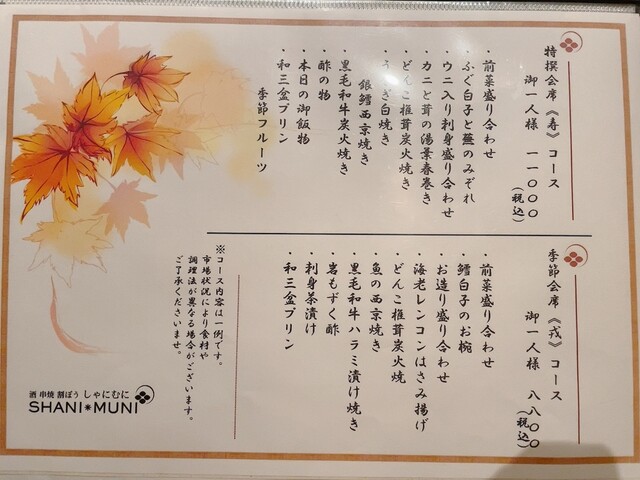 特撰会席《寿》コース
御一人様 一一〇〇〇
(税込)
・前菜盛り合わせ
・ふぐ白子と蕪のみぞれ
・ウニ入り刺身盛り合わせ
・カニと茸の湯葉春巻き
・どんこ椎茸炭火焼き
・うなぎ白焼き
銀鱈西京焼き
・黒毛和牛炭火焼き
・酢の物
・本日の御飯物
・和三盆プリン
季節フルーツ
季節会席《戎》コース
御一人様 八八〇〇
(税込)
・前菜盛り合わせ
・鱈白子のお椀
・お造り盛り合わせ
・海老レンコンはさみ揚げ
・どんこ椎茸炭火焼
・魚の西京焼き
・黒毛和牛ハラミ漬け焼き
・岩もずく酢
・刺身茶漬け
・和三盆プリン
※コース内容は一例です。
市場状況により食材や
調理法が異なる場合がございます。
ご了承くださいませ。
酒 串焼 割ぽう しゃにむに
SHANI✷MUNI